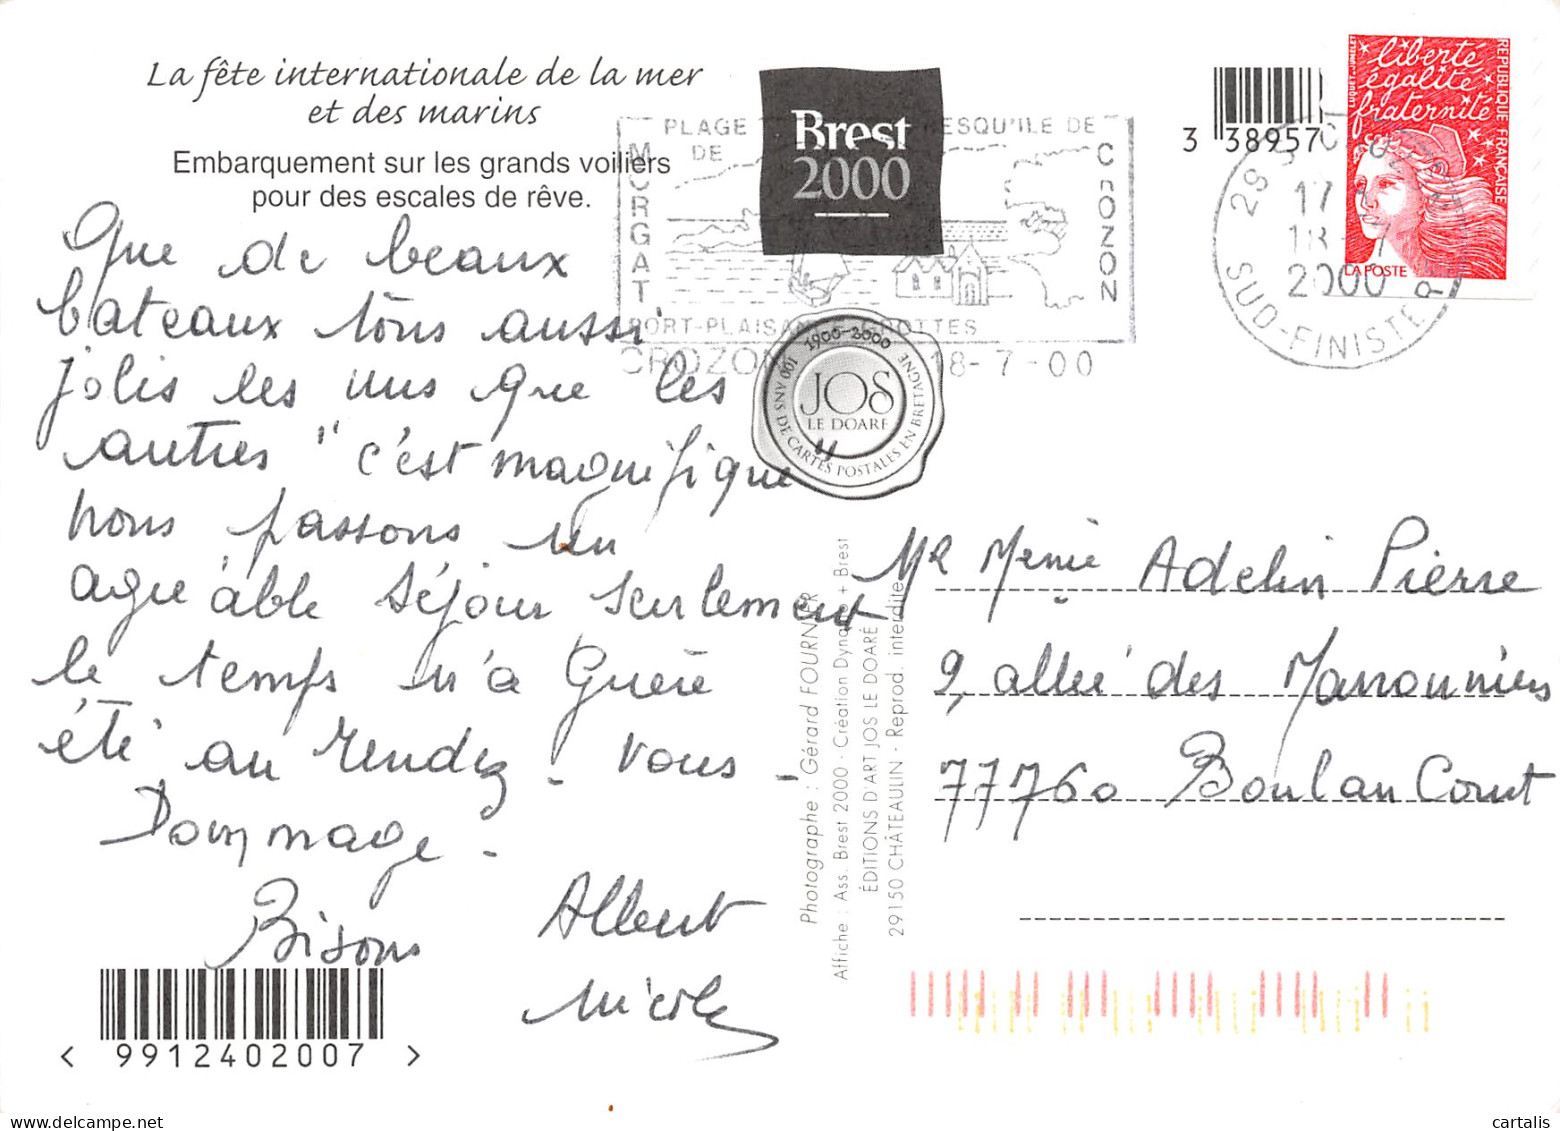 La fête internationale de la mer
et des marins
Embarquement sur les grands voiliers
pour des escales de rêve.
Brest
2000
PLAGE ESQU'ILE DE
DE
MORGAT
CROZON
PORT-PLAISAN OTTES
CROZON 18-7-00
3 338957
liberté
égalité
fraternité
REPUBLIQUE FRANÇAISE
LA POSTE
29
17
18-7
2000
SUD-FINISTERE
1900-2000
100 ANS DE CARTES POSTALES EN BRETAGNE
JOS
LE DOARÉ
Que de beaux
bateaux tous aussi
jolis les uns que les
autres "c'est magnifique"
nous passons un
agréable séjour seulement
le temps n'a Guère
été au rendez-vous -
Dommage -
Bisous Albert
Nicole
Mr Mme Adelin Pierre
9, allée des Marronniers
77760 Boulancourt
Photographe : Gérard FOURNIER
Affiche : Ass. Brest 2000 - Création Dynamo + Brest
ÉDITIONS D'ART JOS LE DOARÉ
29150 CHÂTEAULIN - Reprod. interdite
< 9912402007 >
cartalis